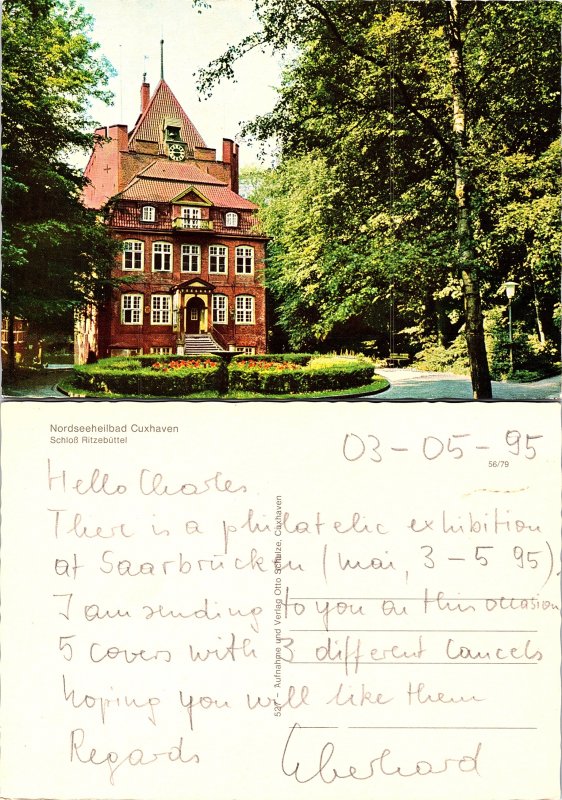 Nordseeheilbad Cuxhaven
Schloß Ritzebüttel
03-05-95
56/79
Hello Charles
There is a philatelic exhibition
at Saarbrücken (mai, 3-5 95),
I am sending to you on this occasion
5 covers with 3 different cancels
hoping you will like them
Regards Eberhard
527 - Aufnahme und Verlag Otto Schulze, Cuxhaven